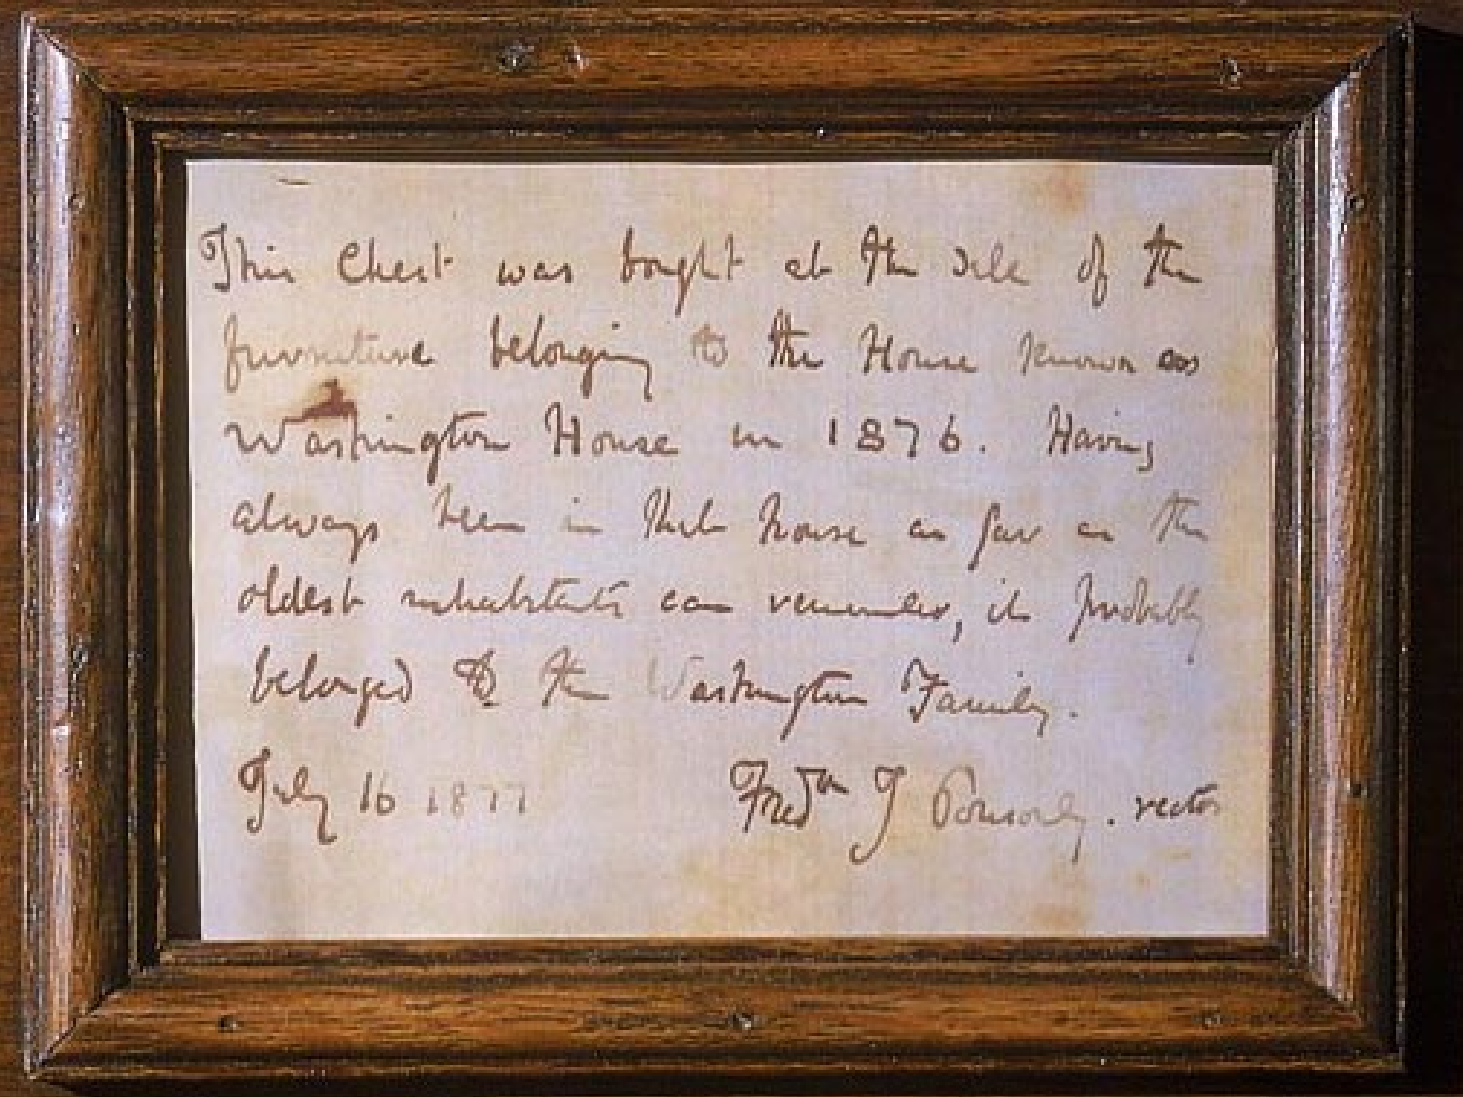 This Chest was bought at the sale of the
furniture belonging to the House known as
Washington House in 1876. Having
always been in that house as far as the
oldest inhabitants can remember, it probably
belonged to the Washington Family.
July 16 1877 Fredk J Ponsonby. rector